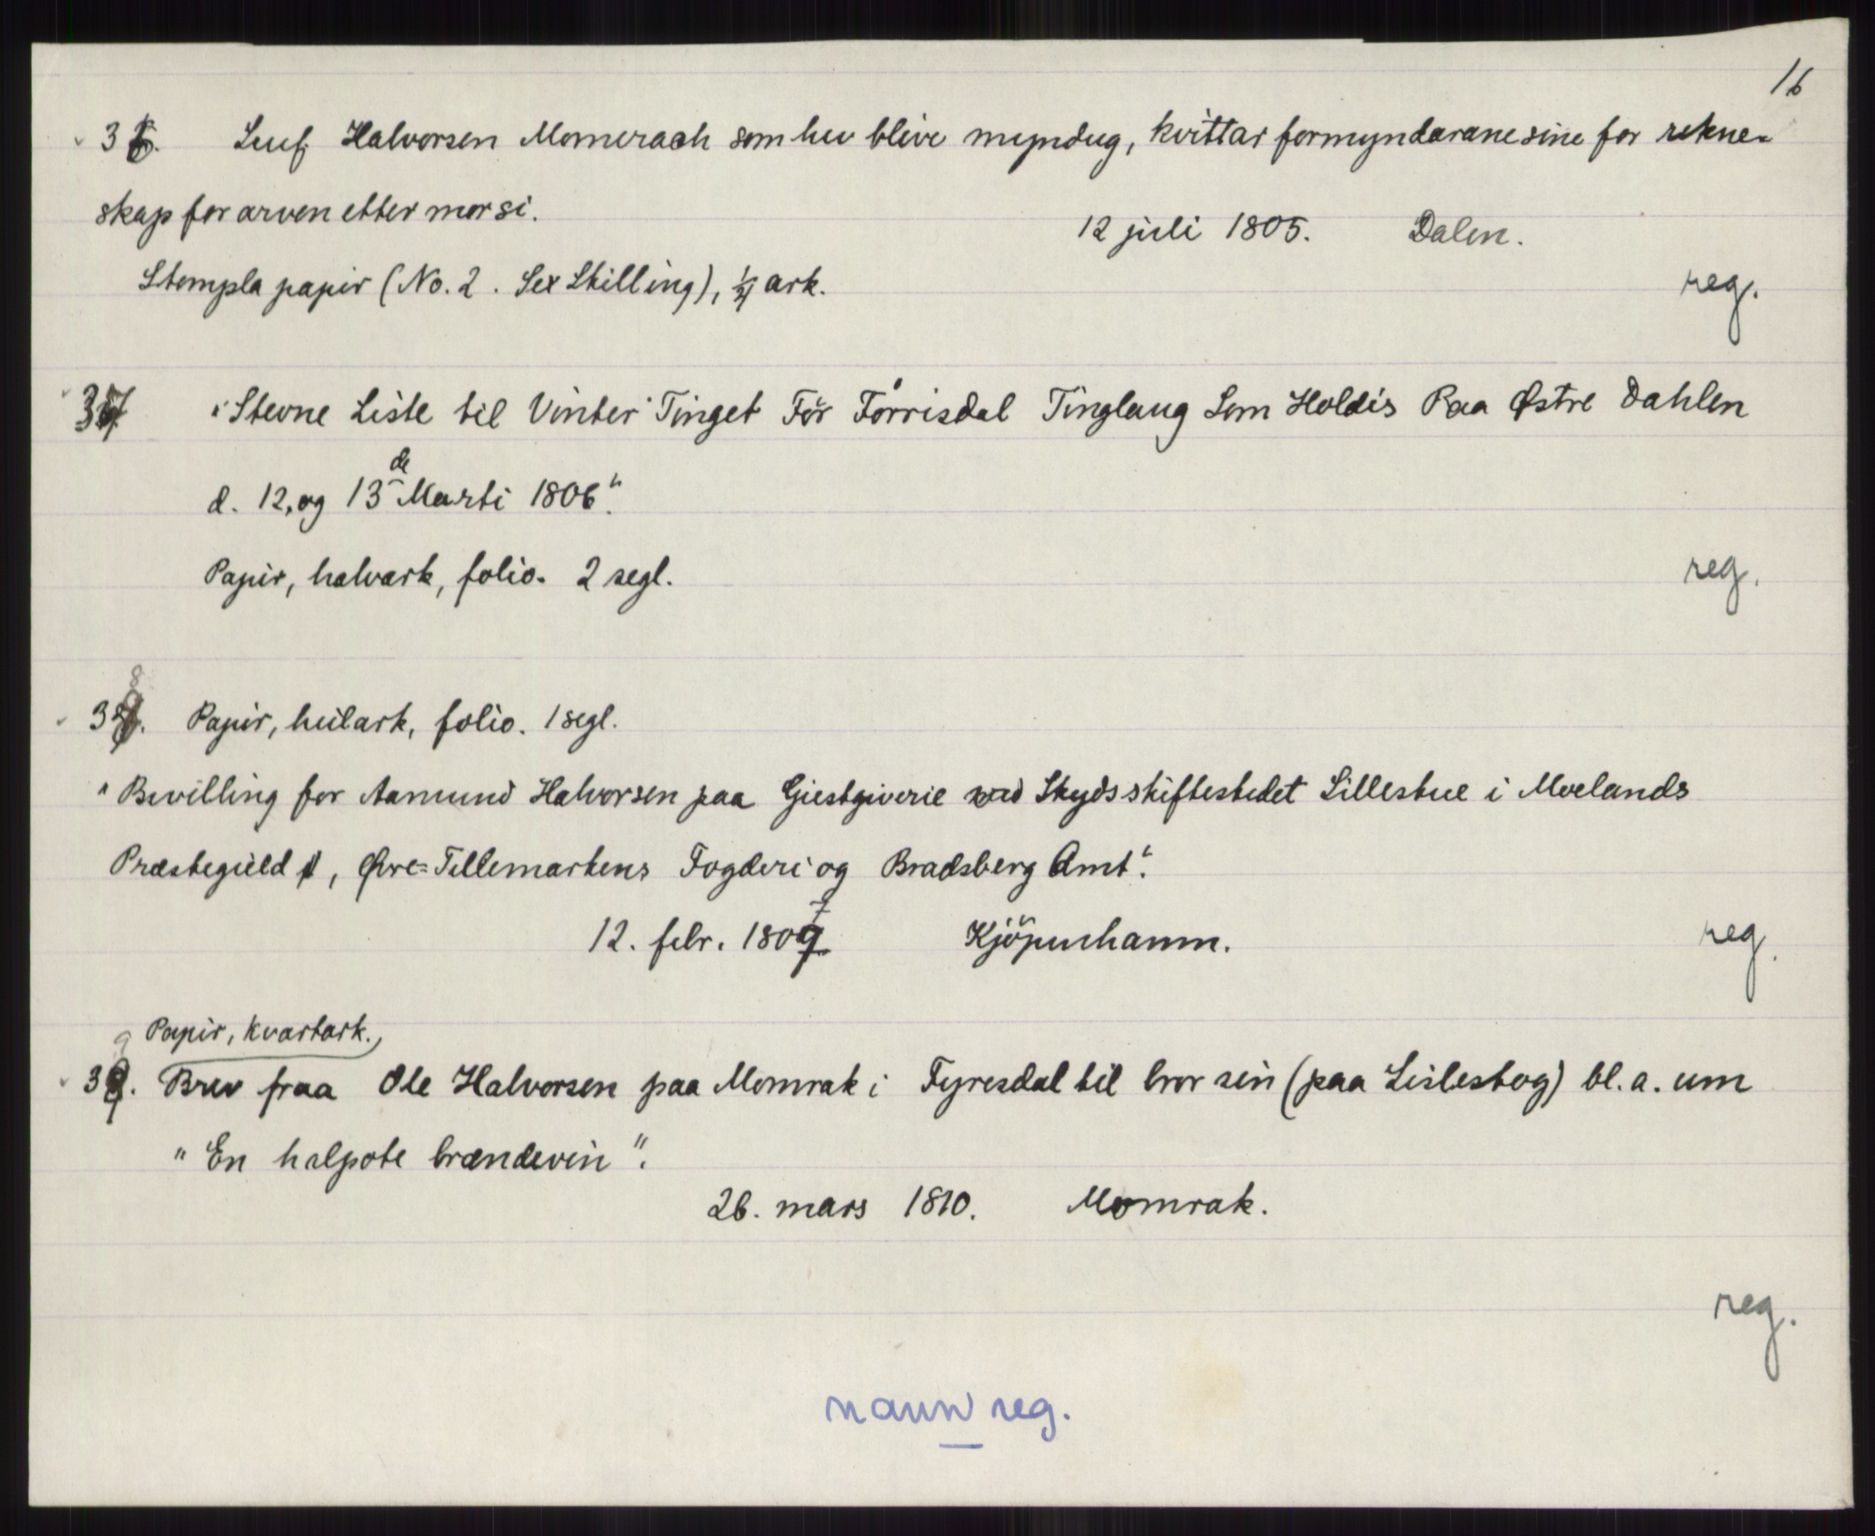 16
36. Leuf Halvorsen Momerach som hev blive myndug, kvittar formyndarane sine for rekne=
skap for arven etter mor si.
12 juli 1805. Dalen.
Stempla papir (No. 2. Sex Skilling), 1/2 ark. reg.
37 "Stevne Liste til Vinter Tinget För Förrisdal Tinglaug Som Holdis Paa Østre Dahlen
d. 12, og 13de Marti 1806".
Papir, halvark, folio. 2 segl. reg.
38. Papir, heilark, folio. 1 segl.
"Bevilling for Aamund Halvorsen paa Giestgiverie ved Skydsskiftestedet Lillestue i Moelands
Præstegield, Øvre=Tellemarkens Fogderi og Bradsberg Amt".
12. febr. 1807 Kjöpenhamn. reg.
Papir, kvartark.
39. Brev fraa Ole Halvorsen paa Momrak i Fyresdal til bror sin (paa Lislestog) bl. a. um
"En halpote brændevin".
26. mars 1810. Momrak.
reg.
navn reg.